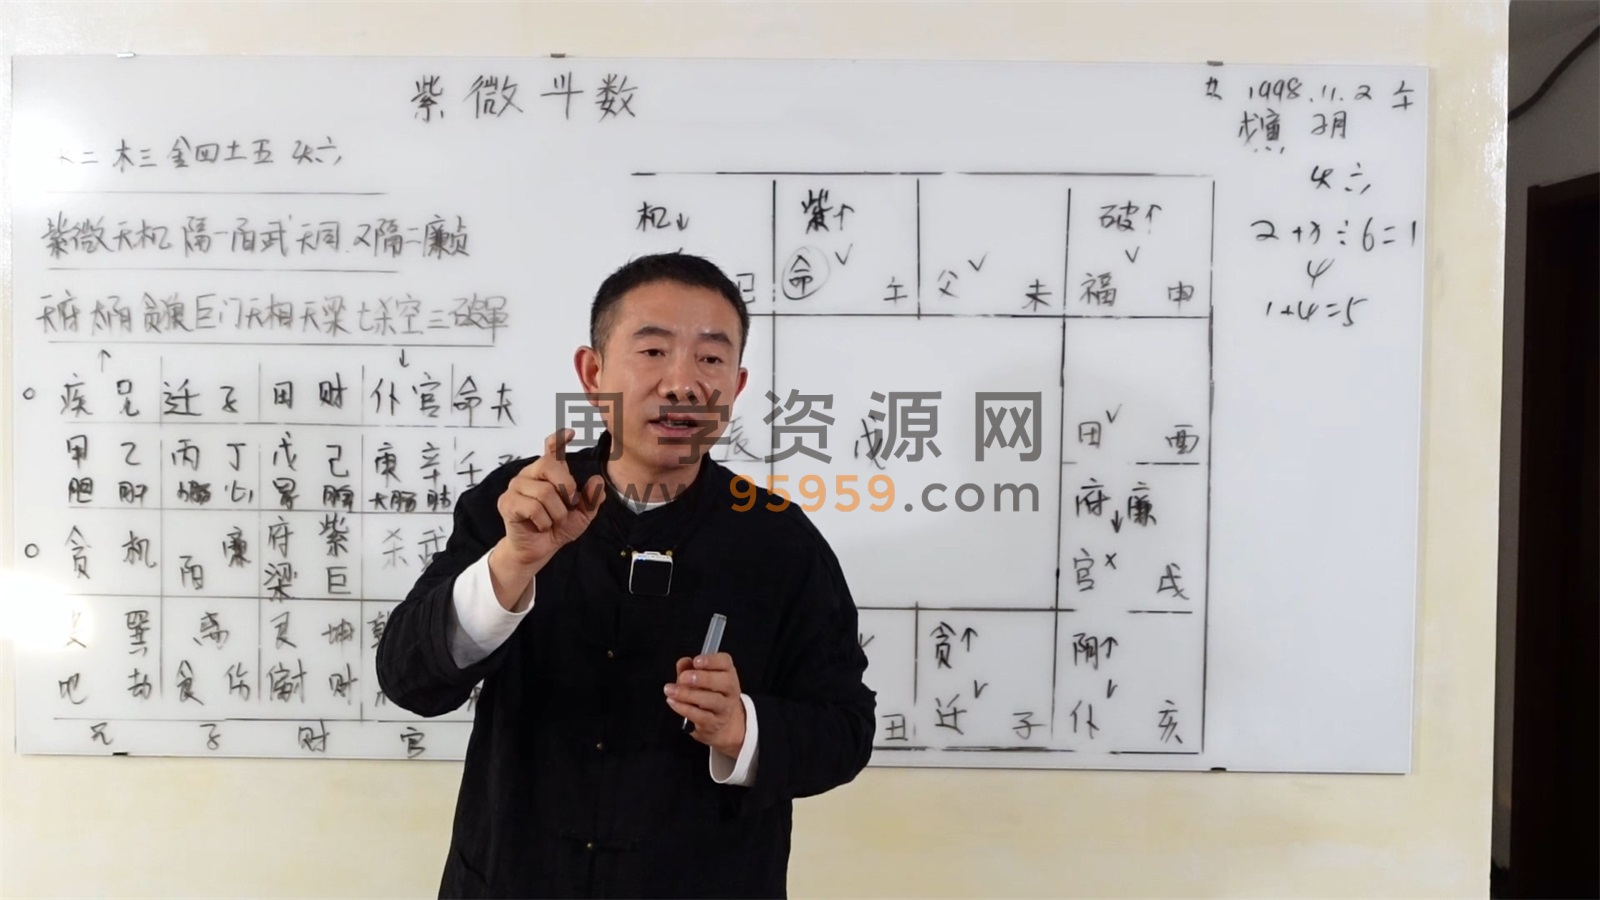 紫微斗数
二 木三 金四 土五 火六
紫微天机 隔一阳武天同 又隔二廉贞
天府太阴贪狼巨门天相天梁七杀空三破军
↑ ↓
疾 兄 迁 子 田 财 仆 官 命 夫
甲 乙 丙 丁 戊 己 庚 辛 壬
胆 肝 小肠 心 胃 脾 大肠 肺
贪 机 阳 廉 府 紫 杀 武
梁 巨
巽 离 艮 坤 乾
地 劫 食 伤 财
兄 子 财 官
机↓ 紫↑ 破↑
巳 命 午 父 未 福 申
辰 戊 田 酉
府 廉↓
官 × 戌
贪↑ 阴↑
丑 迁 子 仆 亥
女 1998.11.2 午
戊寅 2月
火六
2+ ÷6=1
4
1+4=5
国学资源网
www.95959.com